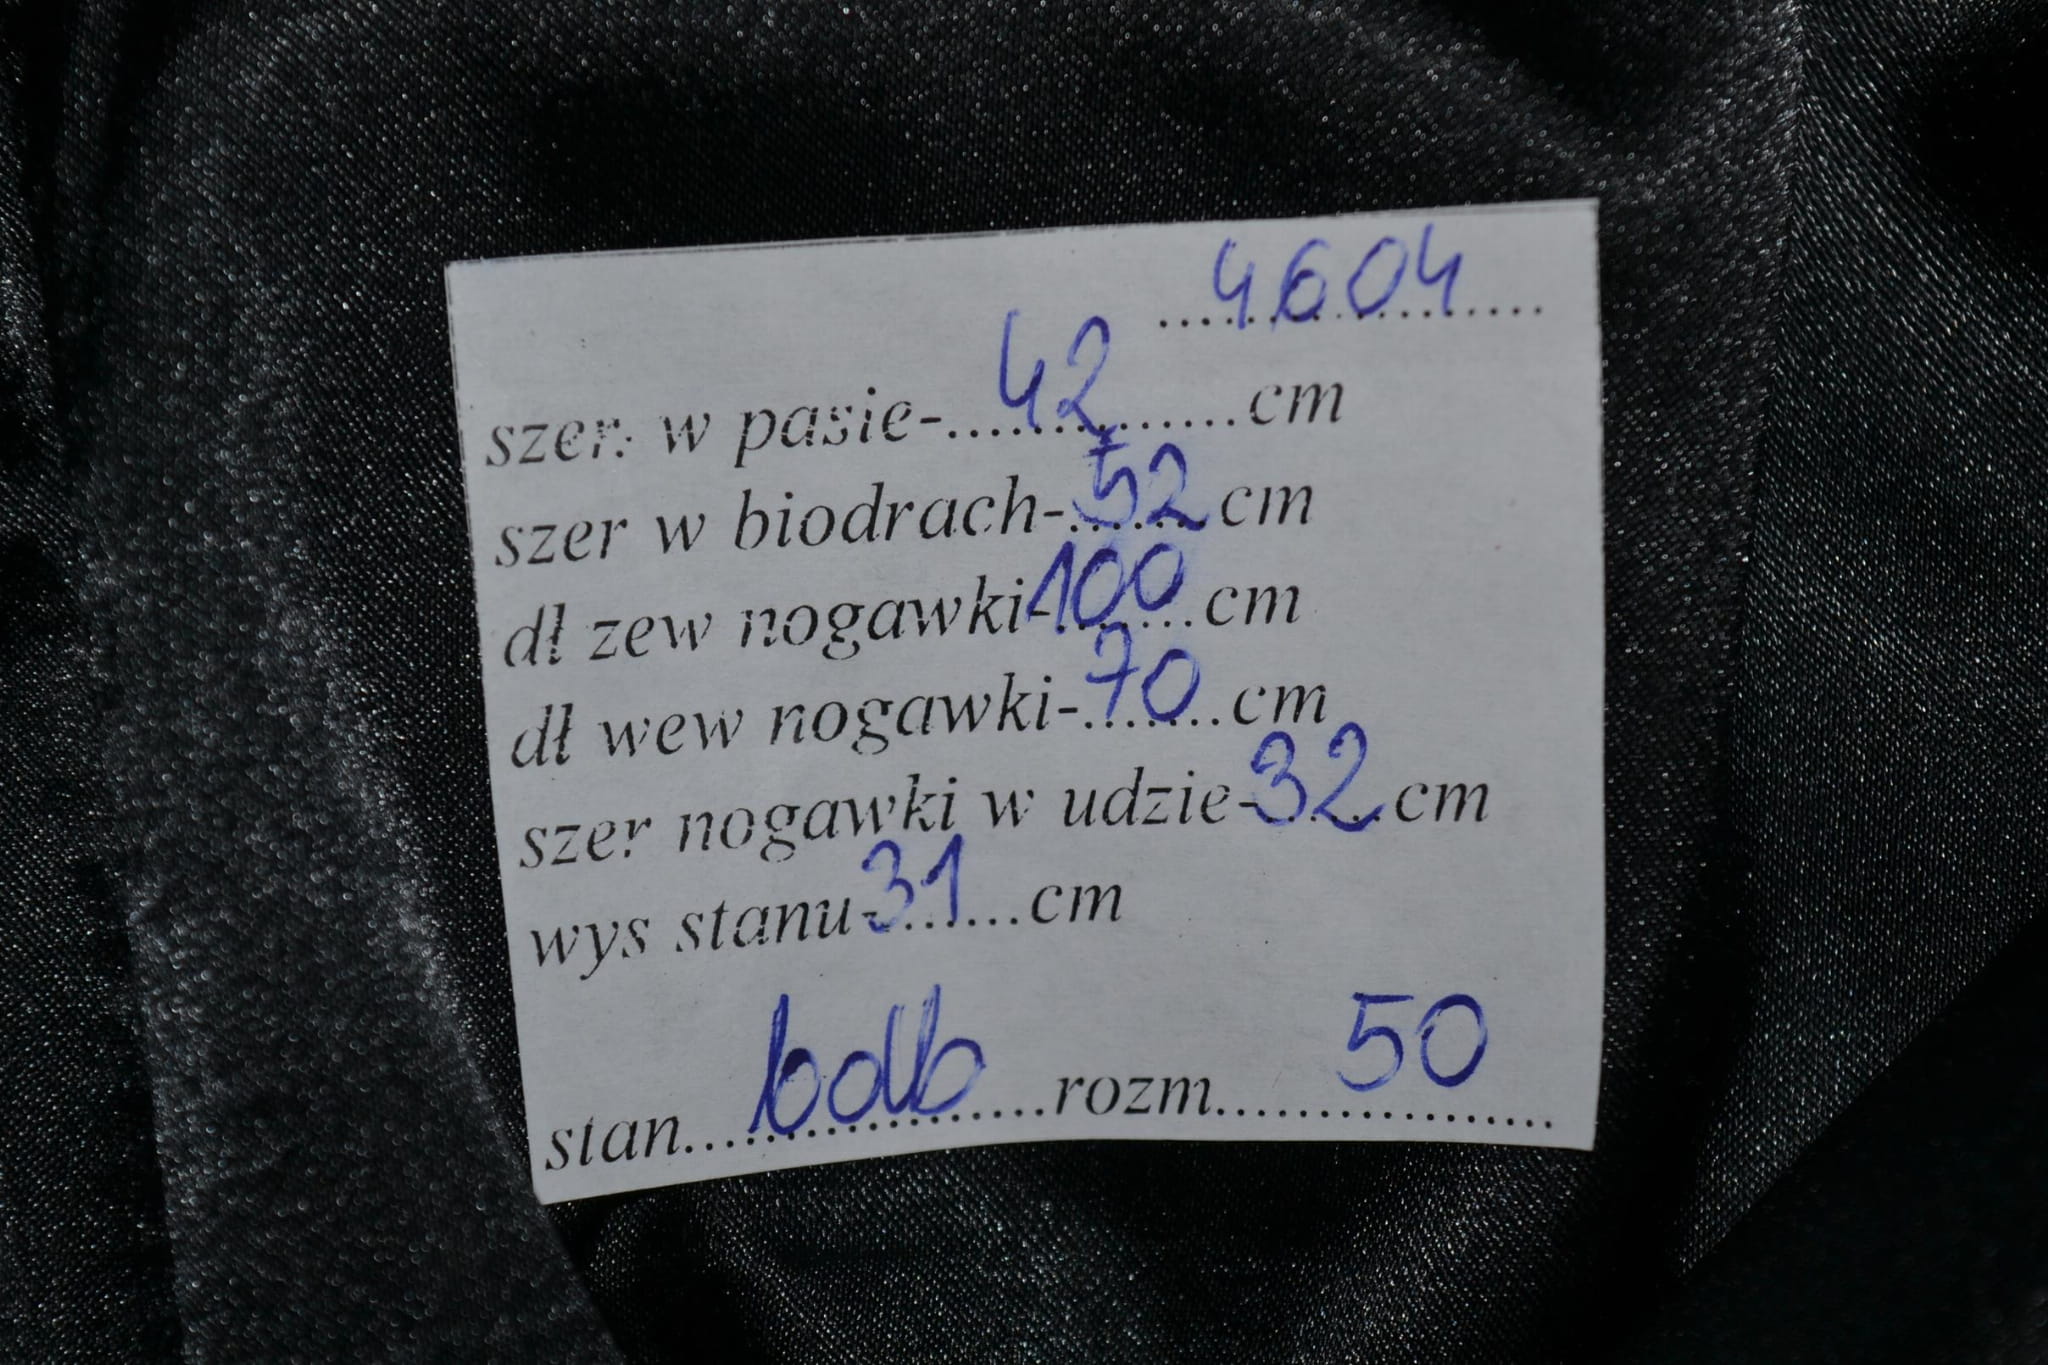 4604
szer. w pasie-....42....cm
szer w biodrach-..52..cm
dł zew nogawki-100...cm
dł wew nogawki-.70..cm
szer nogawki w udzie-32..cm
wys stanu-31...cm
stan....bdb....rozm....50....